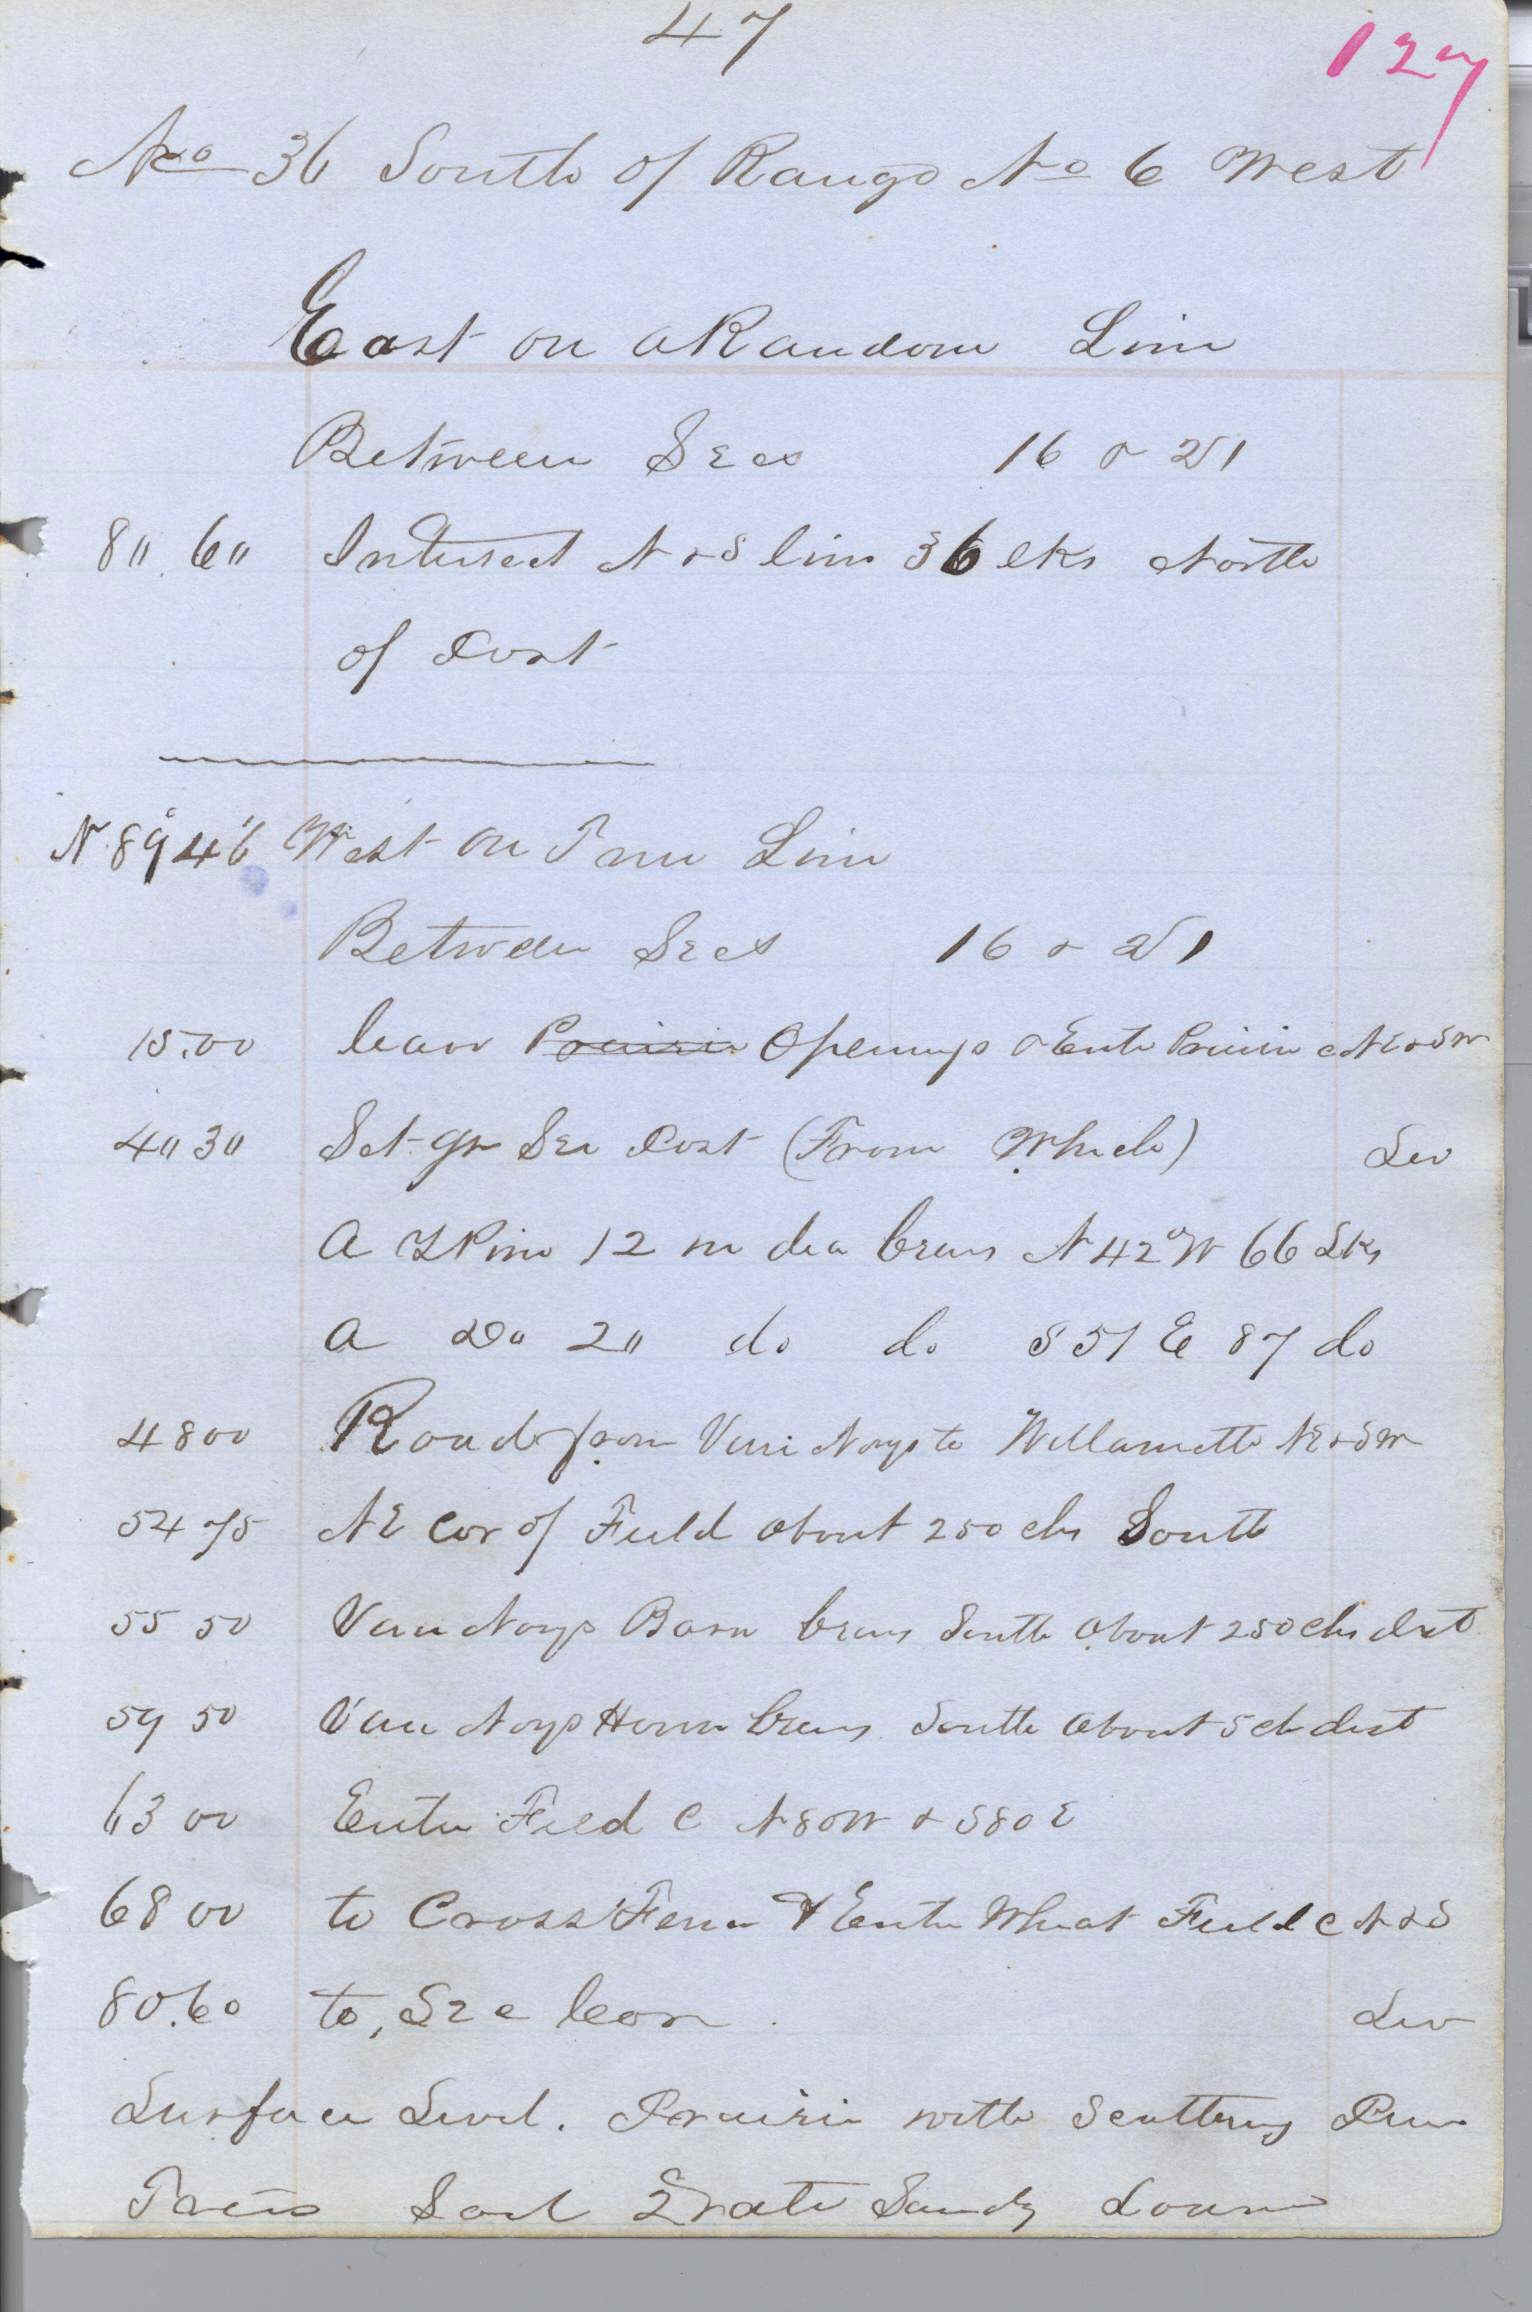 47
127
No 36 South of Range No 6 West
East on a Random Line
Between Secs 16 & 21
80.60 Intersect N & S line 36 lks North
of Post
N. 89° 46' West on True Line
Between Secs 16 & 21
15.00 leave Prairie Openings & Enter Prairie c NE & SW
40 30 Set qr Sec Post (From Which) Lev
A Y Pine 12 in dia bears N 42° W 66 Lks
A Do 20 do do S 51 E 87 do
48 00 Road from Van Noys to Willamette NE & SW
54 75 NE Cor of Field about 250 chs South
55 50 Van Noys Barn bears South about 250 chs dist
59 50 Van Noys House bears South about 5 ch dist
63 00 Enter Field C N 80 W & S 80 E
68 00 to Cross Fence & Enter Wheat Field C N & S
80.60 to, Sec Cor Lev
Surface Level. Prairie with Scattering Pine
Trees Soil 2 rate Sandy Loam